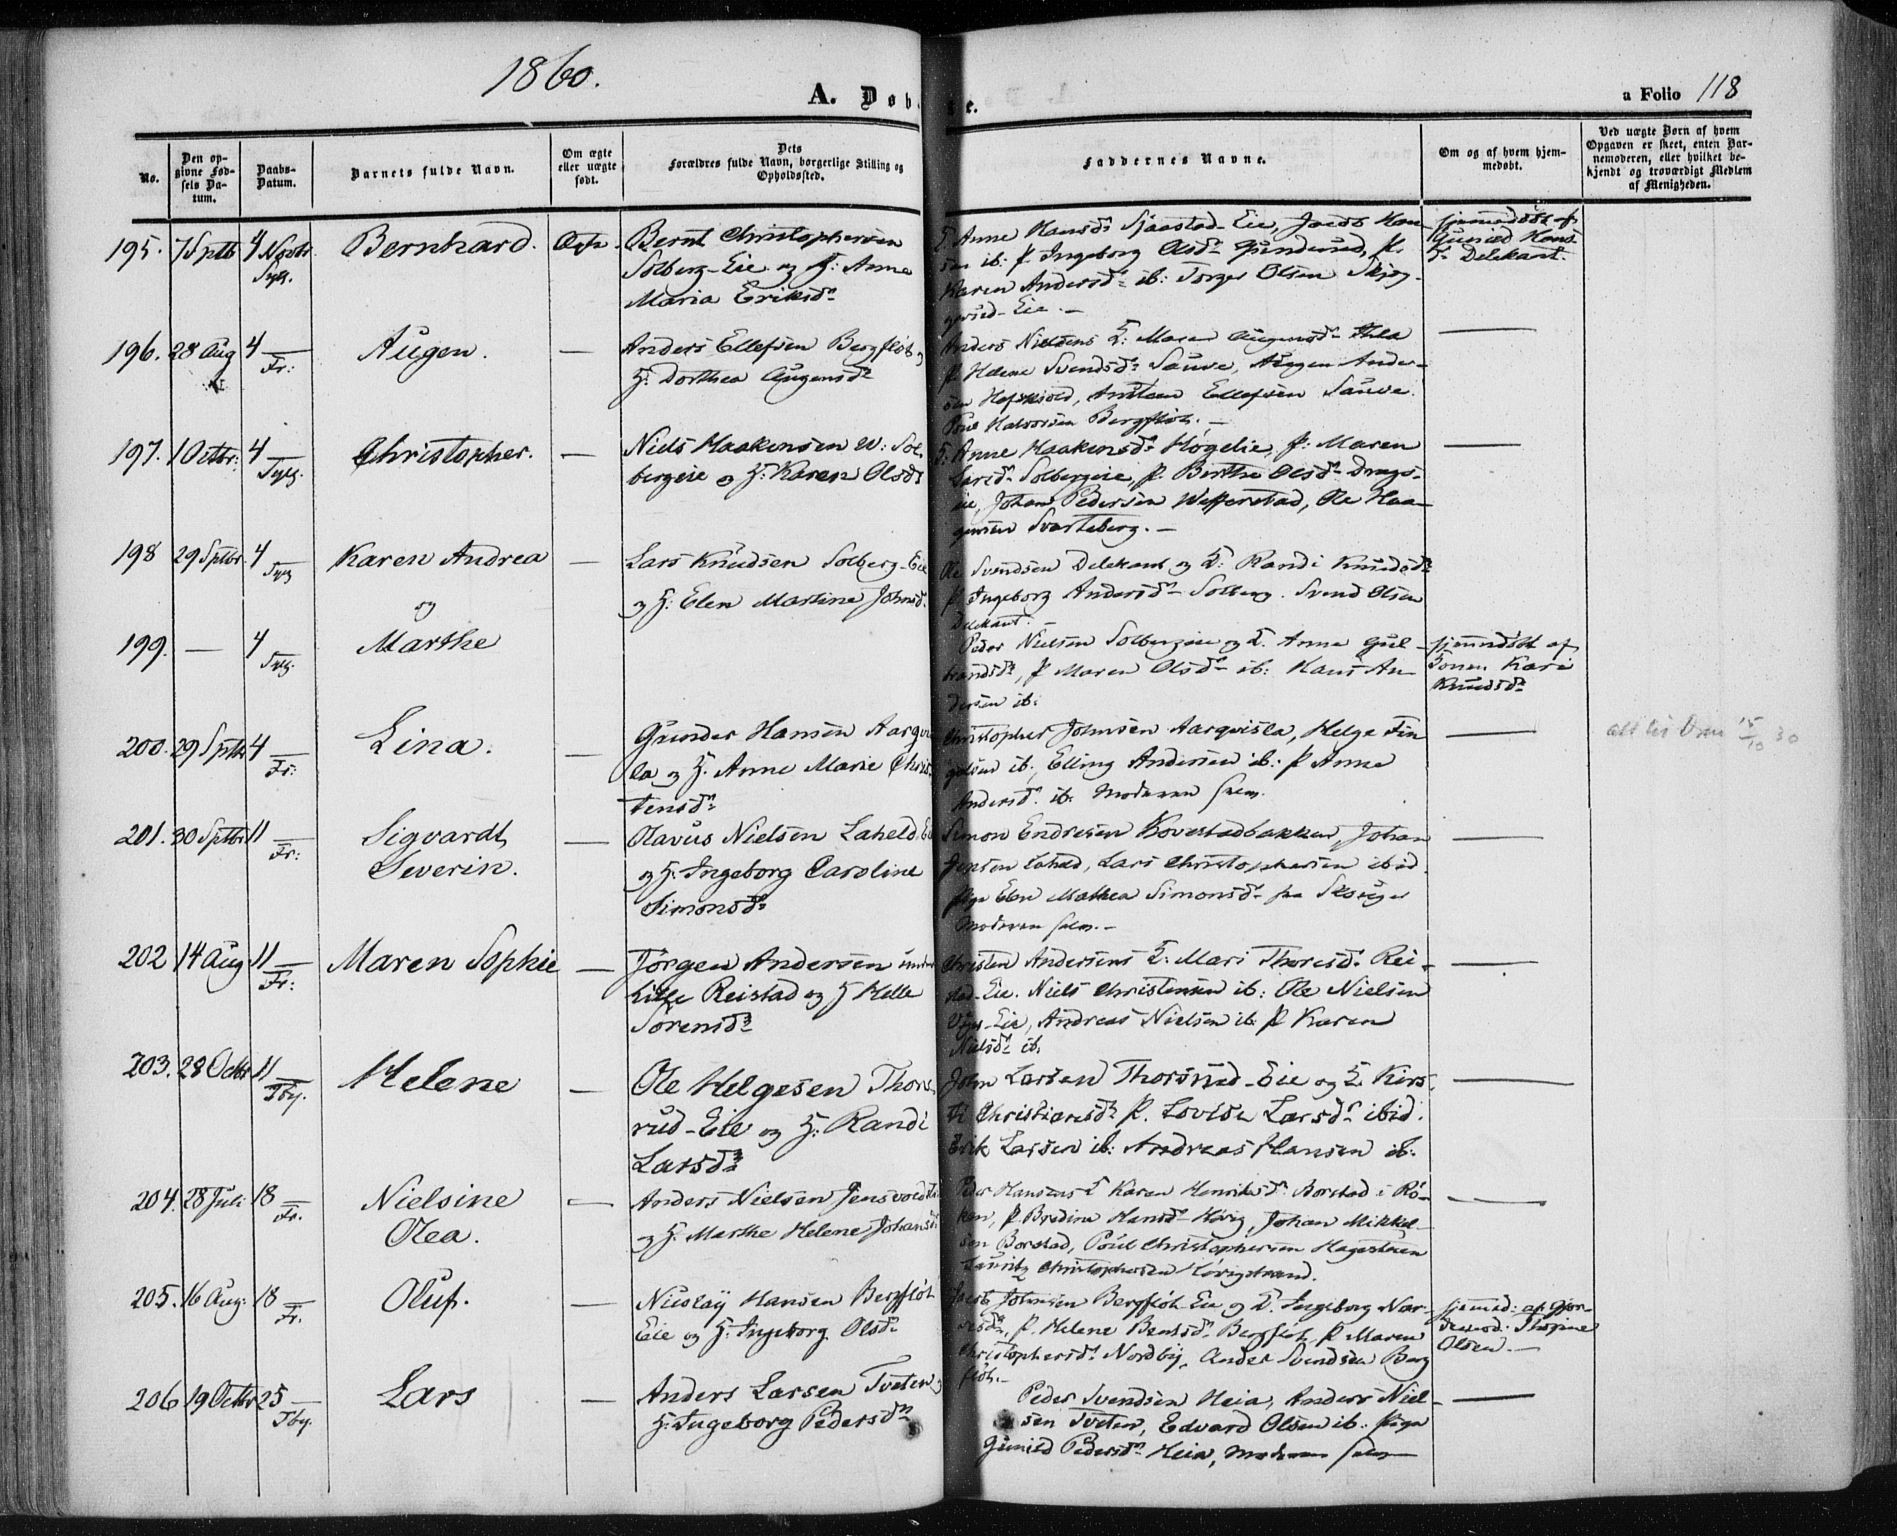 1860.
A. Døb
te.
a Folio 118
No.
Den op-
givne Fød-
sels Da-
tum.
Daabs-
Datum.
Barnets fulde Navn.
Om ægte
eller uægte
født.
Dets
Forældres fulde Navn, borgerlige Stilling og
Opholdssted.
Faddernes Navne.
Om og af hvem hjem-
medøbt.
Ved uægte Børn af hvem
Opgaven er skeet, enten Bar-
nemoderen, eller hvilket be-
kjendt og troværdigt Medlem
af Menigheden.
195. 7 Sptb 4 Novbr. Bernhard. Bernt Christophersen
Solberg-Eie og H: Anne
Maria Eriksdr
Anne Hansdr Sjaastad-Eie, Jacob Han-
sen ib: P. Ingeborg Olsdr P.
Karen Andersdr ib: Torger Olsen Skjøg-
Eie.
hjemmedøbt af
Gunild Hans
dr Delekant.
196. 28 Aug 4 Fr: Augen. —
Anders Ellefsen Bergfløt
H: Dorthea Augensdr
Anders Nielsens H: Maren Augensdr
P. Helene Svendsdr Sauve, Augen Ander-
sen Ellefsen Sauve.
Poul Halvorsen Bergfløt. —
197. 1 Octbr: 4 Christopher. —
Niels Haakensen Sol-
bergeie og H: Karen Olsdr
Anne Haakensdr Høgelie, P: Maren
Larsdr Solbergeie, P. Berthe Olsdr
Johan Pedersen Wefferstad, Ole Haa-
gensen Svarteberg. —
198 29 Sptbr. 4 Karen Andrea —
og
Lars Knudsen Solberg-Eie
og H: Elen Martine Johnsdr.
Ole Svendsen Delekant og H: Randi Knudsdr
P. Ingeborg Andersdr Solberg. Svend Olsen
Delekant. —
199. — 4 Marthe
Peder Nielsen Solbergeie og H. Anne Gul-
brandsdr, P Maren Olsdr ib: Hans An-
dersen ib:
hjemmedøbt af
Konen Kari
Knudsdr
200. 29 Sptbr 4 Fr: Lina. —
Gunder Hansen Aarqvis
la og H. Anne Marie Chris
tensdr
Christopher Johnsen Aarqvisla, Helge Fin
galsen ib, Elling Andersen ib: P Anne
Andersdr. ib. Moderen selv.
15/10 30
201. 30 Sptbr 11 Fr: Sigvardt
Severin. —
Olavus Nielsen Laheld Eie
og H: Ingeborg Caroline
Simonsdr
Simon Endresen Hovestadbakken, Johan
Jensen Laheld, Lars Christophersen ibid
Pige Elen Mathea Simonsdr fra Skoger
Moderen selv. —
202 14 Aug 11 Fr: Maren Sophie —
Jørgen Andersen under
Lille Reistad og H Helle
Sørensdr
Christen Andersens H: Mari Thoresdr Rei-
stad-Eie. Niels Christensen ib: Ole Nielsen
Eie, Andreas Nielsen ib. P Karen
Nielsdr ib.
203. 28 Octbr 11 Tby. Helene —
Ole Helgesen Thors
rud-Eie og H: Randi
Larsdr
John Larsen Thorsrud-Eie og H. Kirs
ti Christiansdr P. Lovise Larsdr ibid.
Erik Larsen ib: Andreas Hansen ib.
204. 28 Juli 18 Fr. Nielsine
Olea. —
Anders Nielsen Jensvold
og H. Marthe Helene Johansdr
Peder Hansens H Karen Henriksdr Borstad i Rø-
ken, P. Bredine Hansdr Høvig, Johan Mikkel-
sen Borstad, Poul Christophersen Hagesteen
Lauritz Christophersen Høvigstrand.
205. 16 Aug. 18 Fr. Oluf. —
Nicolay Hansen Bergfløt
Eie og H: Ingeborg Olsdr
Jacob Johnsen Bergfløt Eie og H. Ingeborg
P. Helene Bentsdr Bergfløt P. Maren
Christophersdr Nordby, Ander Svendsen Berg
fløt. —
hjemmed: af Gjor-
demod: Thorine
Olsen. —
206 19 Octbr 25 Tby. Lars —
Anders Larsen Tveten og
H: Ingeborg Pedersdr
Peder Svendsen Heia, Anders Niel-
sen Tveten, Edvard Olsen ib. Pige
Gunild Pedersdr Heia, Moderen selv